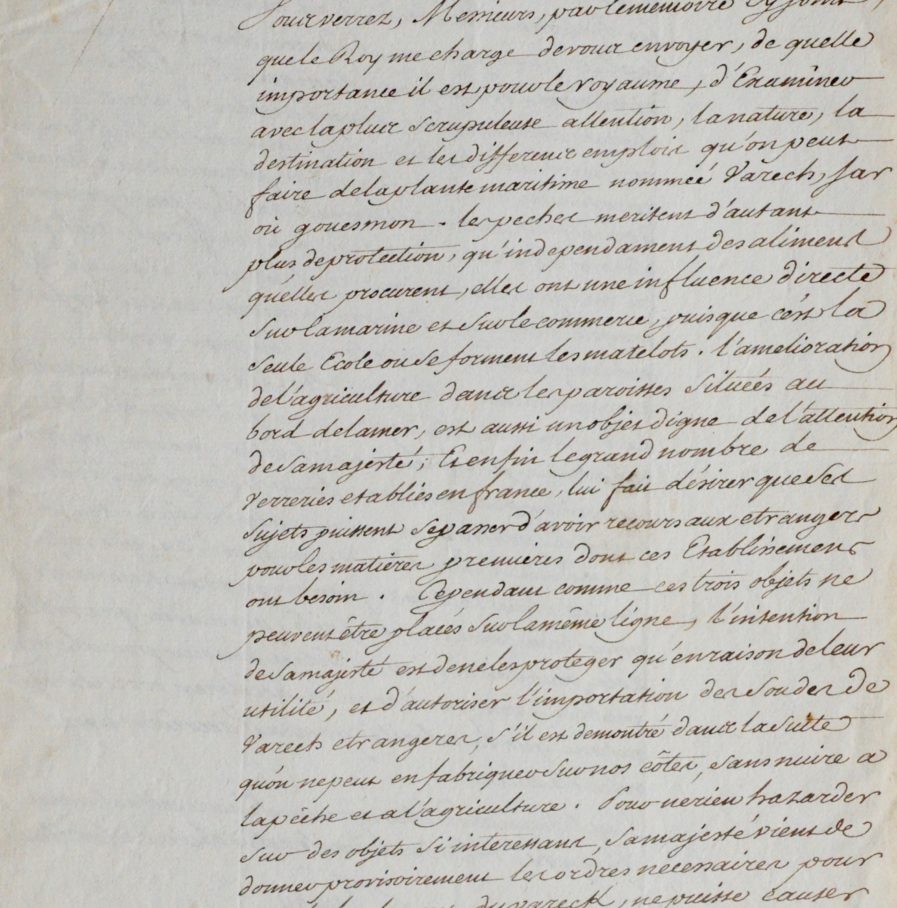 Vous verrez, Messieurs, par le memoire cy joint,
que le Roy me charge de vous envoyer, de quelle
importance il est pour le royaume, d'Examiner
avec la plus scrupuleuse attention, la nature, la
destination et les differens emplois qu'on peut
faire de la plante maritime nommeé Varech, sar
où gouesmon. les peches meritent d'autant
plus de protection, qu'independament des alimens
qu'elles procurent, elles ont une influence directe
sur la marine et sur le commerce, puisque c'est la
seule Ecole ou se forment les matelots. l'amelioration
de l'agriculture dans les paroisses situeés au
bord de la mer, est aussi un objet digne de l'attention
de sa majesté; Et enfin le grand nombre de
verreries etabliés en france, lui fait désirer que ses
sujets puissent se passer d'avoir recours aux etrangers
pour les matières premières dont ces Etablissemens
ont besoin. Cependant comme ces trois objets ne
peuvent être placés sur la même ligne, l'intention
de sa majesté est de ne les proteger qu'en raison de leur
utilité, et d'autoriser l'importation des soudes de
Varech etrangeres, s'il est demontré dans la suite
qu'on ne peut en fabriquer sur nos côtes, sans nuire a
la pêche et a l'agriculture. Pour ne rien hazarder
sur des objets si interessans, sa majesté vient de
donner provisoirement les ordres necessaires pour
du vareck, ne puisse causer